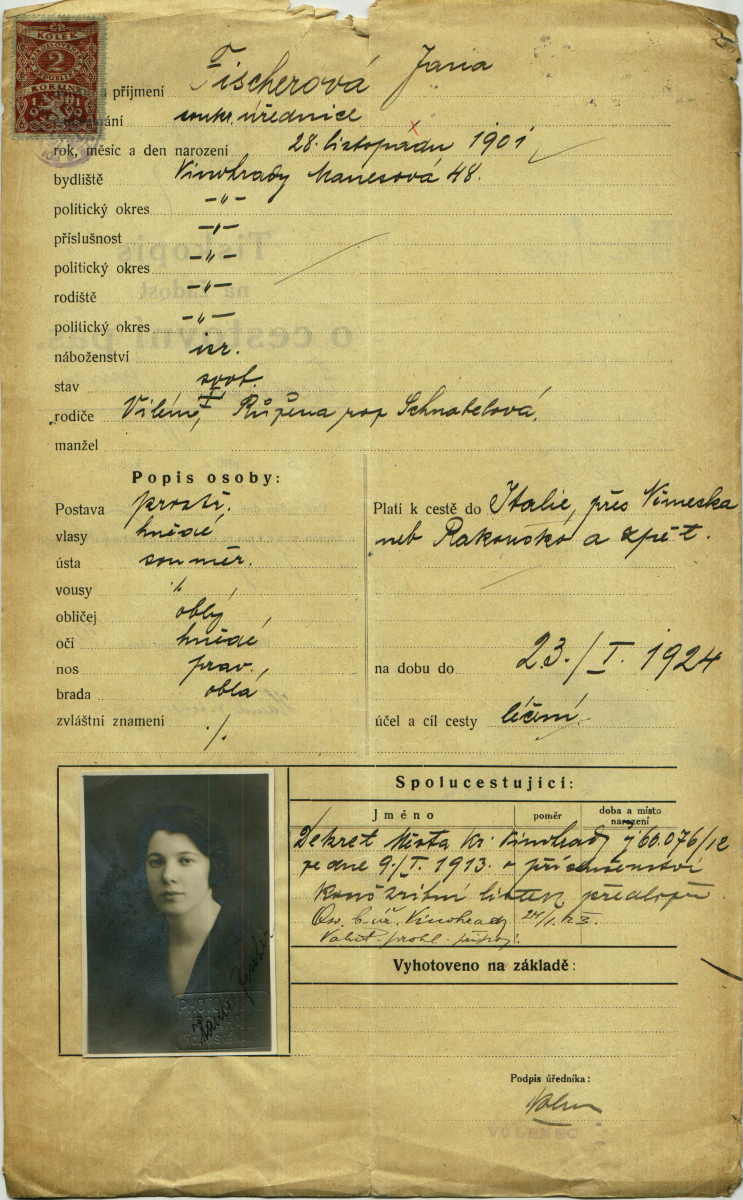 KOLEK
2
KORUNY
příjmení Fischerová Jana
soukr. úřednice
rok, měsíc a den narození 28. listopadu 1901
bydliště Vinohrady Manesová 48.
politický okres –„–
příslušnost –„–
politický okres –„–
rodiště –„–
politický okres –„–
náboženství isr.
stav svob.
rodiče Vilém, Růžena roz Schnabelová,
manžel
Popis osoby:
Postava prostř.
vlasy hnědé,
ústa souměr.
vousy
obličej oblý,
oči hnědé
nos prav.,
brada oblá
zvláštní znamení ./.
Platí k cestě do Italie, přes Německa
neb Rakousko a zpět.
na dobu do 23./I. 1924
účel a cíl cesty léčení.
Spolucestující:
Jméno poměr doba a místo narození
Dekret Města Kr. Vinohrady j 60.076/12
ze dne 9./I. 1913. o příslušenství
Vinohrady
Vyhotoveno na základě:
Podpis úředníka: